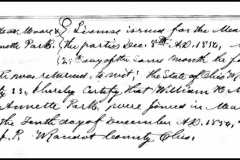 License issued for the Mar
the parties Dec. 8th A.D. 1884,
25th day of the same month the f
was returned, to wit; The State of Ohio W
I hereby Certify that William H. M
Annette Park, were joined in Mar
the Tenth day of December A.D. 1884,
J.P. Wyandot County Ohio.